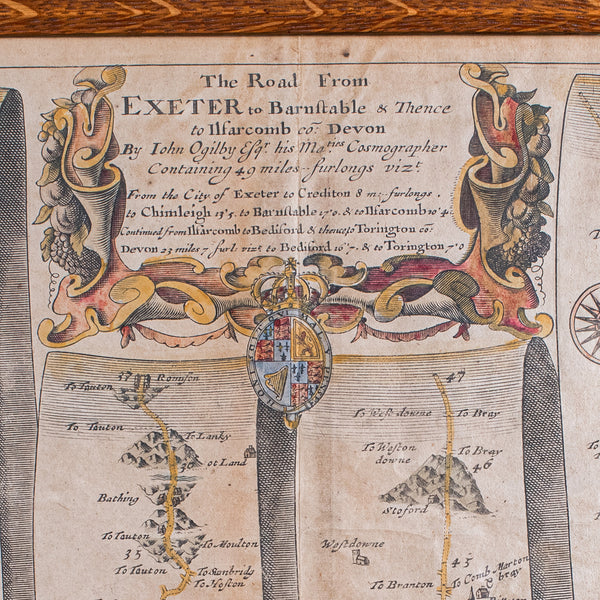 The Road From
EXETER to Barnstable & Thence
to Ilfarcomb co: Devon
By Iohn Ogilby Esqr. his Maties Cosmographer
Containing 49 miles furlongs vizt.
From the City of Exeter to Crediton 8 m: furlongs,
to Chimleigh 13'5. to Barnstable 17'0. & to Ilfarcomb 10'4.
Continued from Ilfarcomb to Bediford & thence to Torington co:
Devon 23 miles 7 furl. vizt. to Bediford 16'7. & to Torington 7'0
HONI SOIT
37 Romson
To Tauton
To Tauton
To Lanky
36
ot Land
Bathing
To Tauton
To Moulton
35
To Tauton
To Sunbridg
To Hoston
47
To West downe
To Bray
To Weston
downe
To Bray
46
Stoford
Westdowne
45
To Comb Merton
bray
To Branton